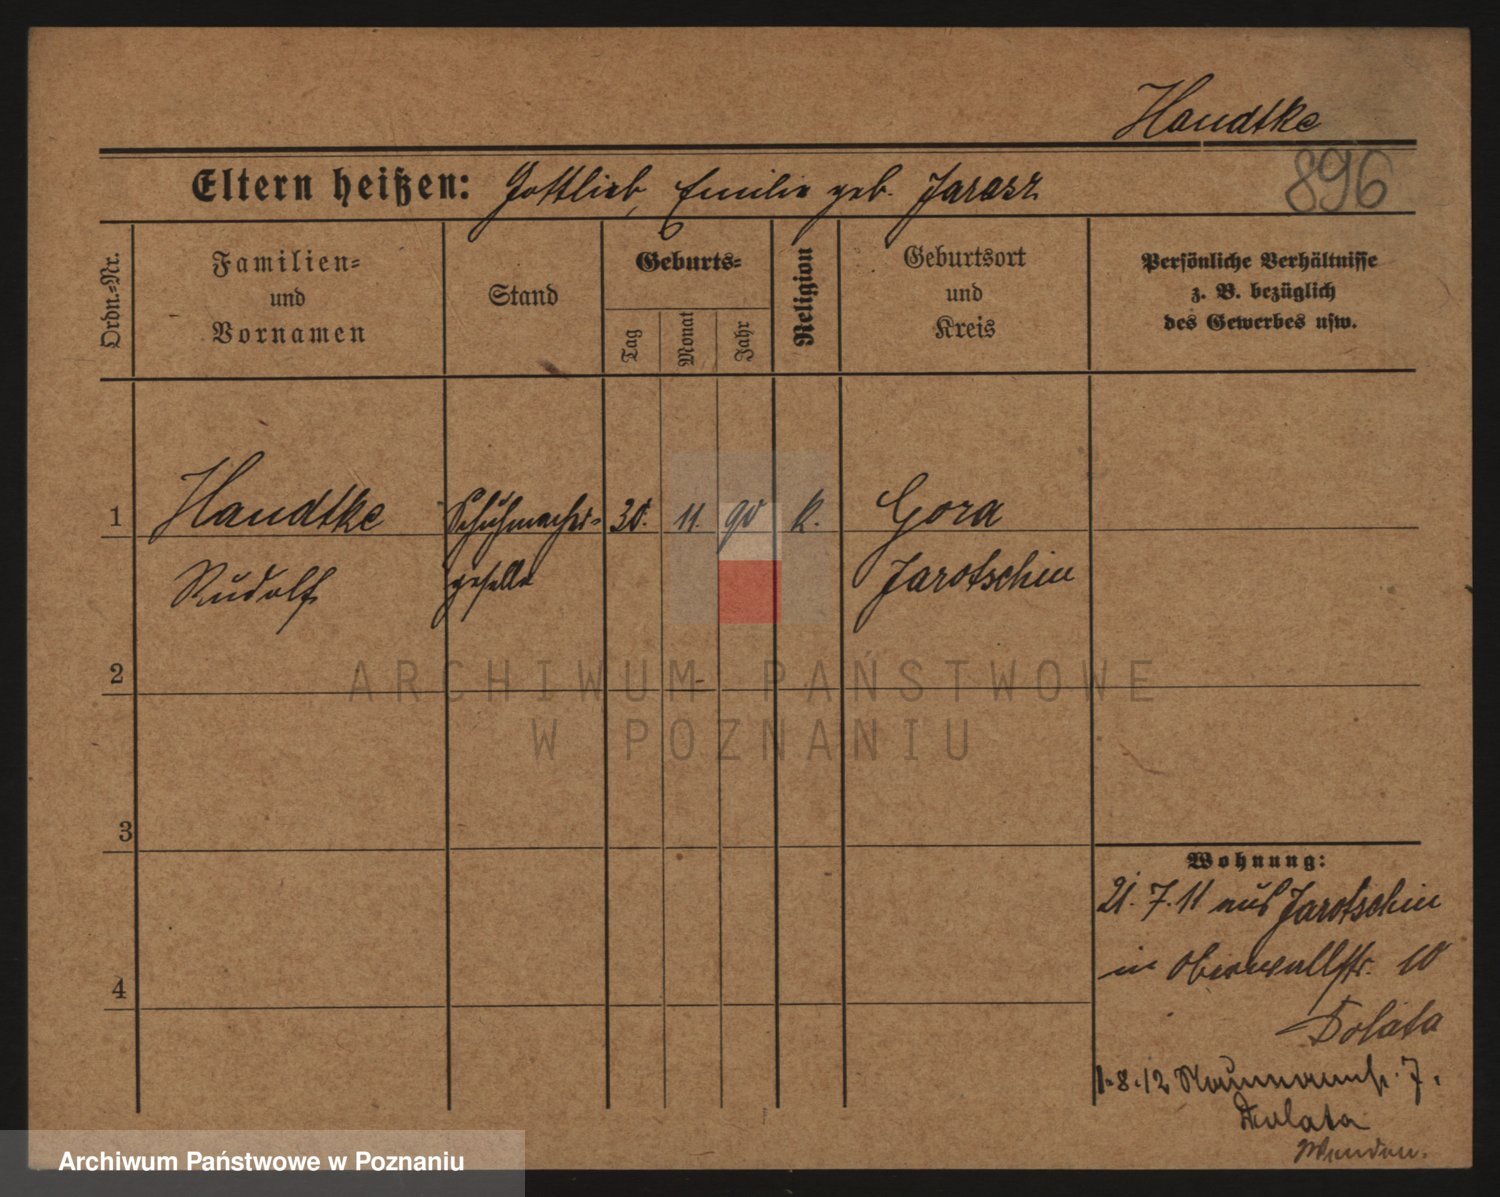 Handtke
896
Eltern heißen: Gottlieb, Emilie geb. Jarosz
Ordn.-Nr.
Familien-
und
Vornamen
Stand
Geburts-
Tag
Monat
Jahr
Religion
Geburtsort
und
Kreis
Persönliche Verhältnisse
z. B. bezüglich
des Gewerbes usw.
1 Handtke Schuhmacher- 30. 11. 90 k. Gora
Rudolf geselle Jarotschin
2
3
4
Wohnung:
21. 7. 11 aus Jarotschin
in Oberwallstr. 10
Dolata
1.8.12 Naumannstr. 7.
Dolata
ARCHIWUM PAŃSTWOWE
W POZNANIU
Archiwum Państwowe w Poznaniu